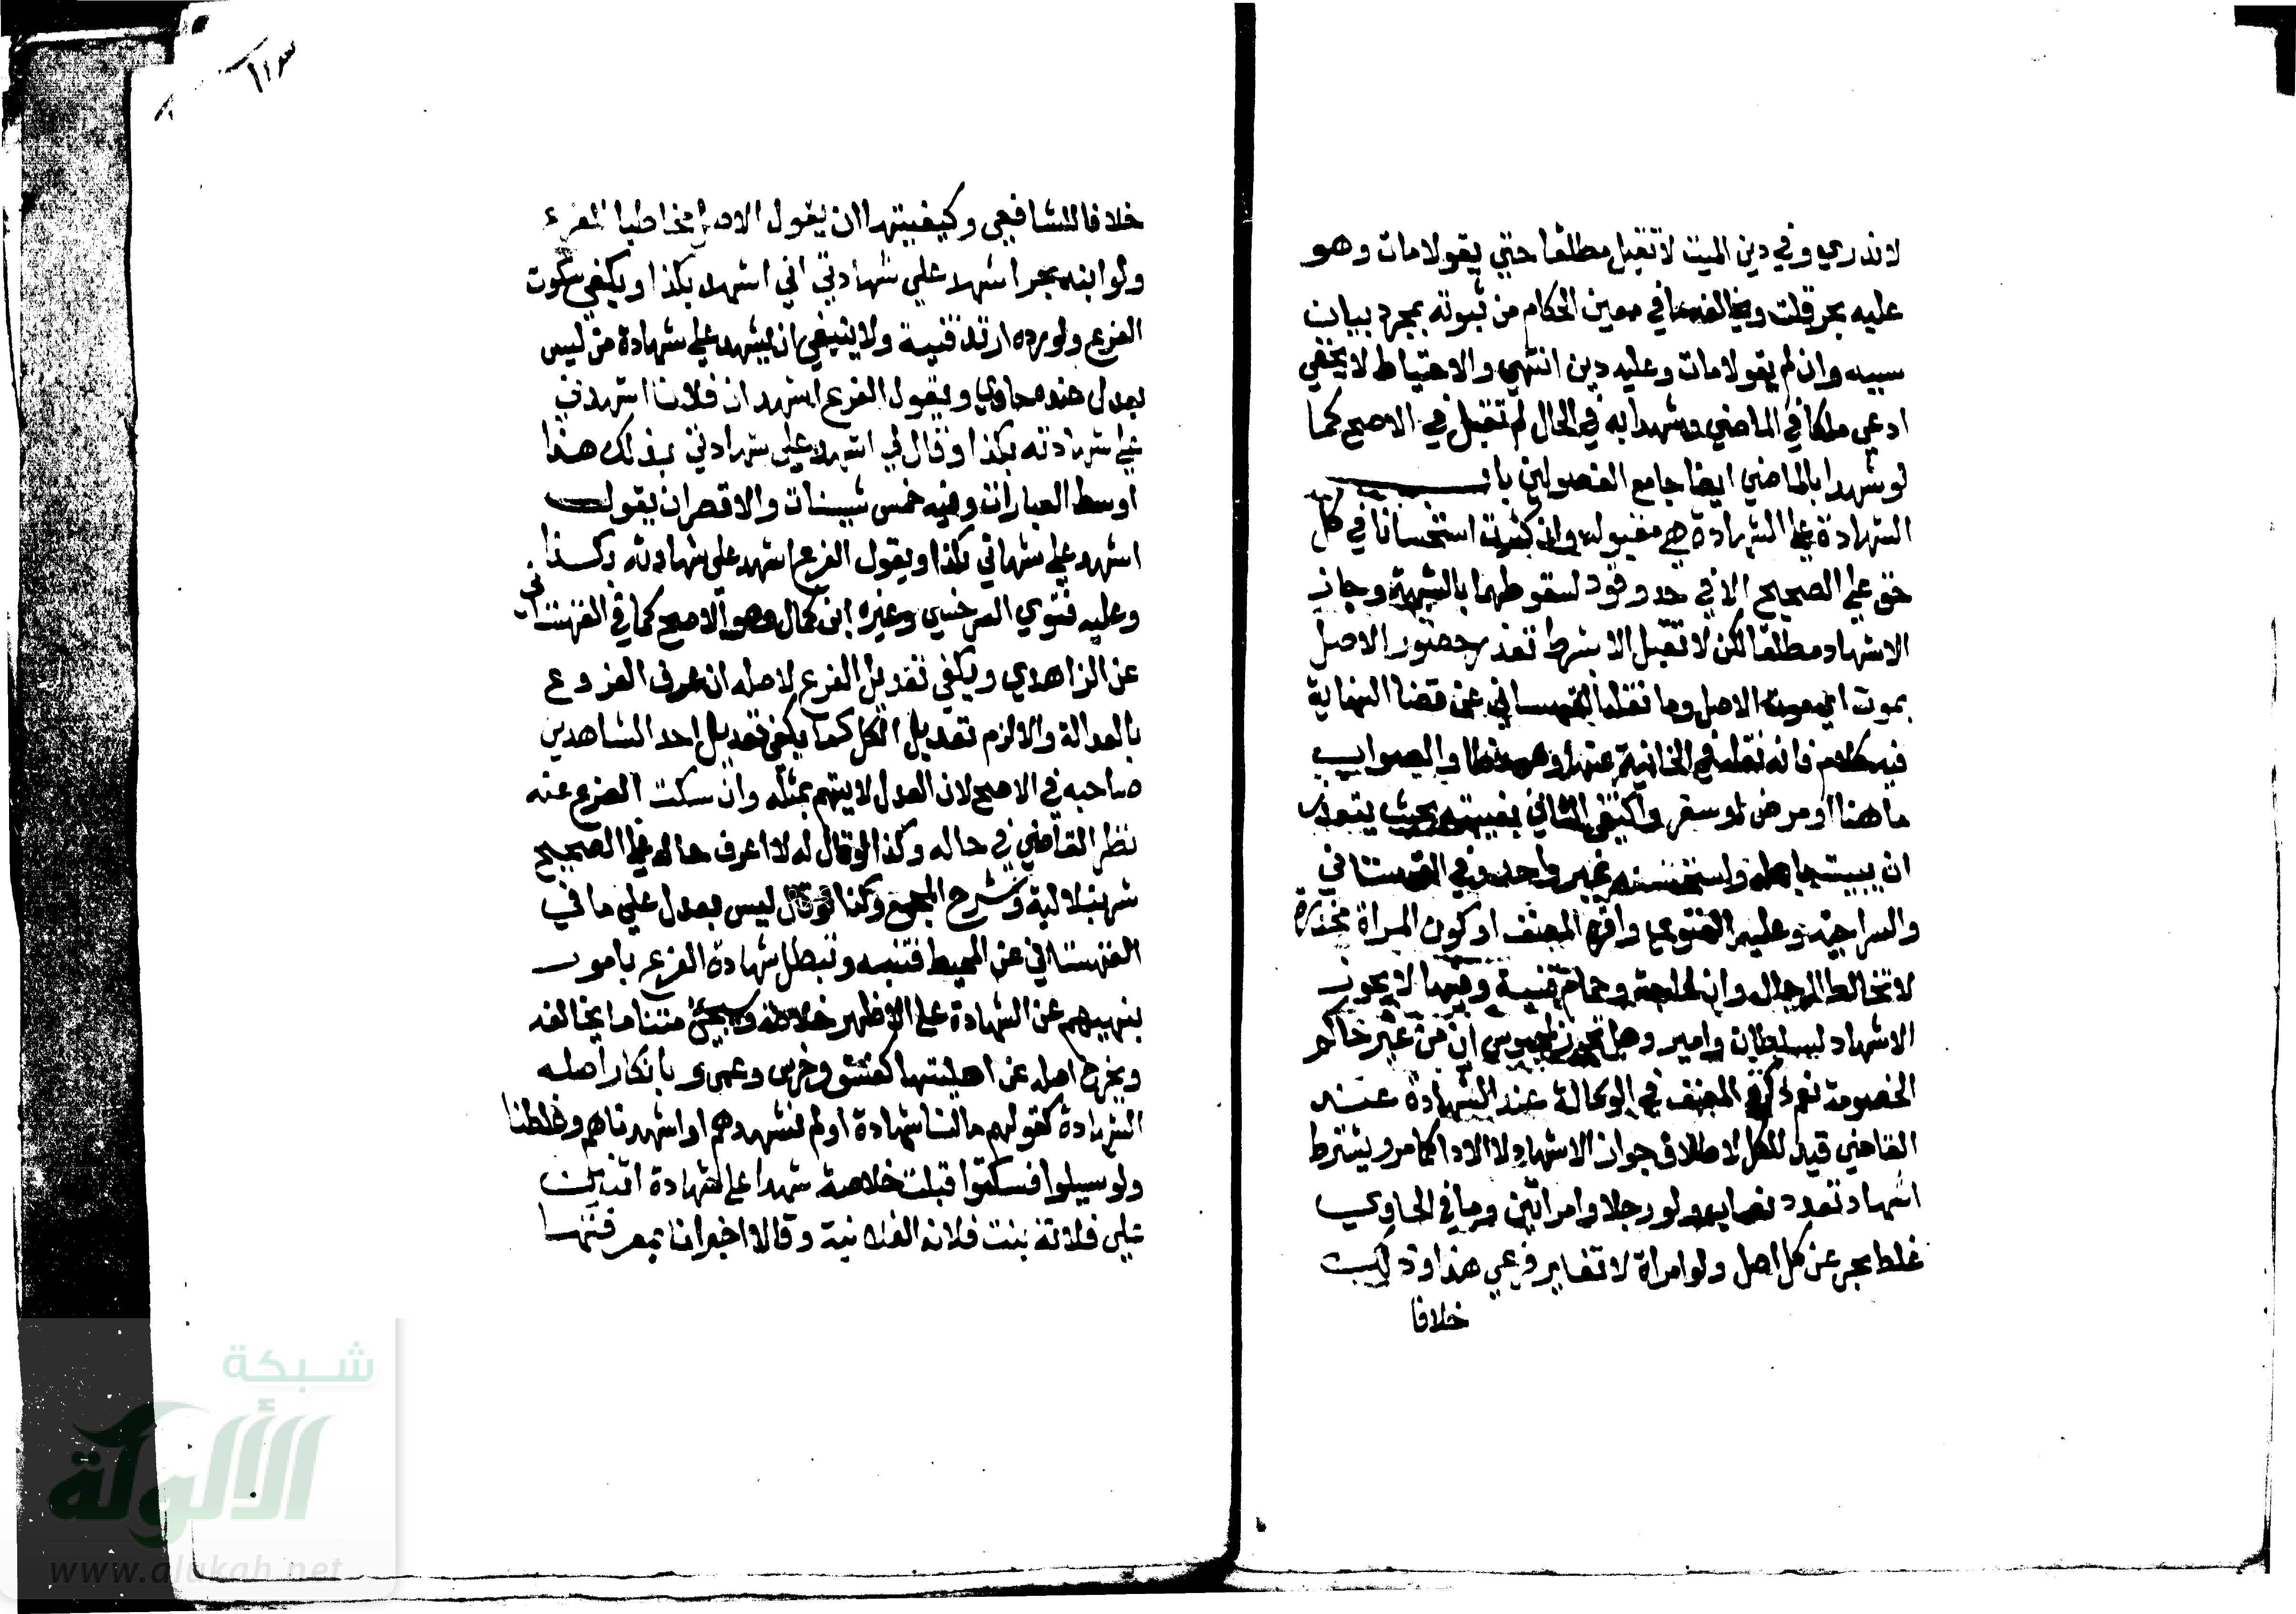 لا ندري وفي دين الميت لا تقبل مطلقا حتي يقولا مات وهو
عليه بحر قلت ويخالفه ما في معين الحكام من ثبوته بمجرد بيان
سببه وان لم يقولا مات وعليه دين انتهي والاحتياط لا يخفي
ادعي ملكا في الماضي وشهدا به في الحال لم تقبل في الاصح كما
لو شهدا بالماضي ايضا جامع الفصولين باب
الشهادة علي الشهادة هي مقبولة وان كثرت استحسانا في كل
حق علي الصحيح الا في حد وقود لسقوطهما بالشبهة وجاز
الاشهاد مطلقا لكن لا تقبل الا بشرط تعذر حضور الاصل
بموت اي موت الاصل وما نقله القهستاني عن قضا النهاية
فيه كلام فانه نقله في الخانية عنها وهو خطا والصواب
ما هنا او مرض او سفر واكتفي الثاني بغيبته بحيث يتعذر
ان يبيت باهله واستحسنه غير واحد وفي القهستاني
والسراجية وعليه الفتوي واقره المصنف او كون المراة مخدرة
لا تخالط الرجال وان لحاجة وحمام قنية وفيها لا يجوز
الاشهاد لسلطان وامير وهل يجوز لمحبوس ان من غير حاكم
الخصومة نعم ذكره المصنف في الوكالة عند الشهادة عند
القاضي قيد للكل لاطلاق جواز الاشهاد لا الادا كما مر ويشترط
اشهاد تعدد نصابه ولو رجلا وامراتين وما في الحاوي
غلط بحر عن كل اصل ولو امراة لا تغاير فرعي هذا وذاك
خلافا
١١٣
خلافا للشافعي وكيفيتها ان يقول الاصل مخاطبا للفرع
ولو ابنه بحر اشهد علي شهادتي اني اشهد بكذا ويكفي سكوت
الفرع ولو رده ارتد قنية ولا ينبغي ان يشهد علي شهادة من ليس
بعدل عنده حاوي ويقول الفرع اشهد ان فلانا اشهدني
علي شهادته بكذا وقال لي اشهد علي شهادتي بذلك هذا
اوسط العبارات وفيه خمس شينات والاقصر ان يقول
اشهد علي شهاتي بكذا ويقول الفرع اشهد علي شهادته بكذا
وعليه فتوي السرخسي وغيره ابن كمال وهو الاصح كما في القهستاني
عن الزاهدي ويكفي تعديل الفرع لاصله ان عرف الفروع
بالعدالة والا لزم تعديل الكل كما يكفي تعديل احد الشاهدين
صاحبه في الاصح لان العدل لا يتهم بمثله وان سكت الفرع عنه
نظر القاضي في حاله وكذا لو قال له لا اعرف حاله علي الصحيح
شرنبلالية وشرح المجمع وكذا لو قال ليس بعدل علي ما في
القهستاني عن المحيط فتنبه وتبطل شهادة الفرع بامور
بنهيهم عن الشهادة علي الاظهر خلاصة وسيجئ متنا ما يخالفه
وبخروج اصله عن اهليتها كفسق وخرس وعمي وبانكار اصله
الشهادة كقولهم مالنا شهادة او لم نشهدهم او اشهدناهم وغلطنا
ولو سيلوا فسكتوا قبلت خلاصة شهدا علي شهادة اثنين
علي فلانة بنت فلان الفلانية وقالا اخبرانا بمعرفتها
شبكة
الألوكة
www.alukah.net